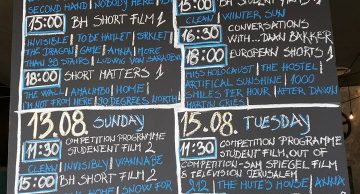 SECOND HAND | NOBODY HERE |
15:00 BH SHORT FILM 1
INVISIBLE | TO BE HAILET | SIRKET |
THE DRAGON | GAME | ANNA | MORE
THAN 38 STAIRS | LUDWIG VAN SARAJEVO
18:00 SHORT MATTERS 1
THE WALL | AMALIMBO | HOME |
I'M NOT FROM HERE | 90 DEGREES NORTH
BH STUDENT FILMS 1
CLEAN | WINTER SUN
16:30 CONVERSATIONS
WITH... DAAN BAKKER
18:00 EUROPEAN SHORTS 1
MISS HOLOCAUST | THE HOSTEL |
ARTIFICIAL SUNSHINE | 1000
SMILES PER HOUR | AFTER DAWN
MARTIN CRIES
13.08. SUNDAY
11:30 COMPETITION PROGRAMME
STUDENENT FILM 2
CLEAN | INVISIBLY | WANNABE
15:00 BH SHORT FILM 2
HOME | SNOW FOR
15.08. TUESDAY
11:30 COMPETITION PROGRAMME
STUDENT FILM, OUT OF
COMPETITION - SAM SPIEGEL FILM
& TELEVISION JERUSALEM
212 | THE MUTE'S HOUSE | ANNA